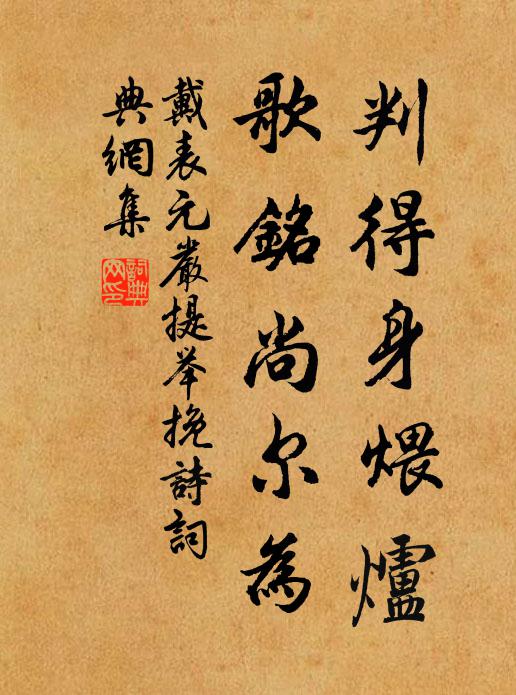 判得身煨爐
歌銘尚尔為
戴表元嚴提举挽詩詞
典網集
詞典網印